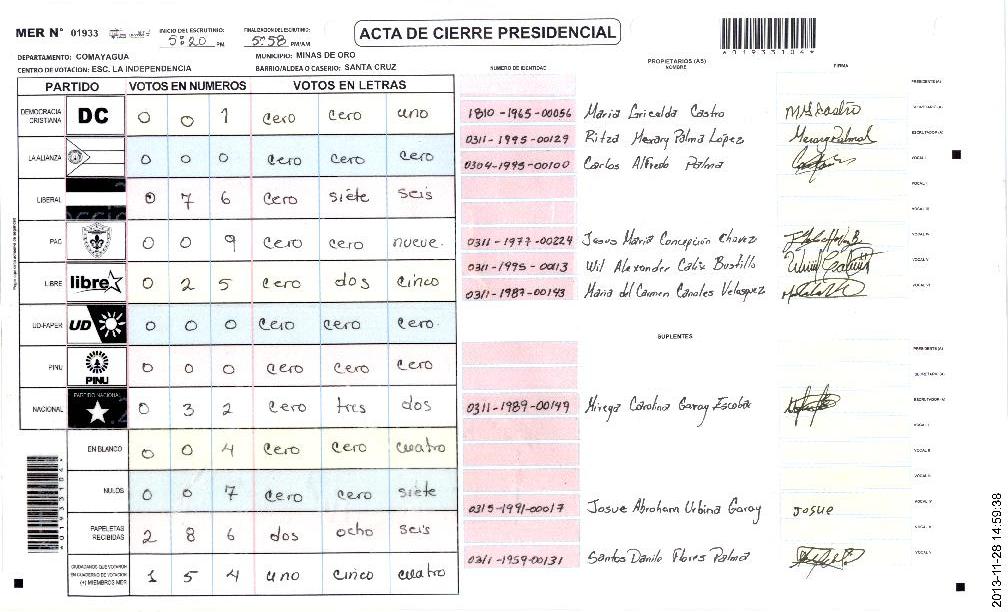 MER N° 01933 INICIO DEL ESCRUTINIO: 5:20 PM FINALIZACION DEL ESCRUTINIO: 5:58 PM/AM
ACTA DE CIERRE PRESIDENCIAL
DEPARTAMENTO: COMAYAGUA MUNICIPIO: MINAS DE ORO
CENTRO DE VOTACION: ESC. LA INDEPENDENCIA BARRIO/ALDEA O CASERIO: SANTA CRUZ
PARTIDO VOTOS EN NUMEROS VOTOS EN LETRAS
DEMOCRACIA CRISTIANA DC 0 0 1 cero cero uno
LA ALIANZA 0 0 0 cero cero cero
LIBERAL 0 7 6 cero siete seis
PAC 0 0 9 cero cero nueve.
LIBRE libre 0 2 5 cero dos cinco
UD-FAPER UD 0 0 0 cero cero cero.
PINU PINU 0 0 0 cero cero cero
NACIONAL PARTIDO NACIONAL 0 3 2 cero tres dos
EN BLANCO 0 0 4 cero cero cuatro
NULOS 0 0 7 cero cero siete
PAPELETAS RECIBIDAS 2 8 6 dos ocho seis
CIUDADANOS QUE VOTARON EN CUADERNO DE VOTACION (+) MIEMBROS MER 1 5 4 uno cinco cuatro
NUMERO DE IDENTIDAD PROPIETARIOS (AS) NOMBRE FIRMA
PRESIDENTE (A)
1810-1965-00056 Maria Gricelda Castro SECRETARIO (A)
0311-1995-00129 Ritza Merary Palma López Merary Palma L ESCRUTADOR (A)
0304-1995-00100 Carlos Alfredo Palma VOCAL I
VOCAL II
VOCAL III
0311-1977-00224 Jesus Maria Concepción Chavez VOCAL IV
0311-1995-0013 Wil Alexander Calix Bustillo VOCAL V
0311-1987-00143 Maria del Carmen Canales Velasquez VOCAL VI
SUPLENTES
PRESIDENTE (A)
SECRETARIO (A)
0311-1989-00149 Mireya Carolina Garay Escobar ESCRUTADOR (A)
VOCAL I
VOCAL II
VOCAL III
0315-1991-00017 Josue Abraham Urbina Garay Josue VOCAL IV
VOCAL V
0311-1959-00131 Santos Danilo Flores Palma VOCAL VI
2013-11-28 14:59:38